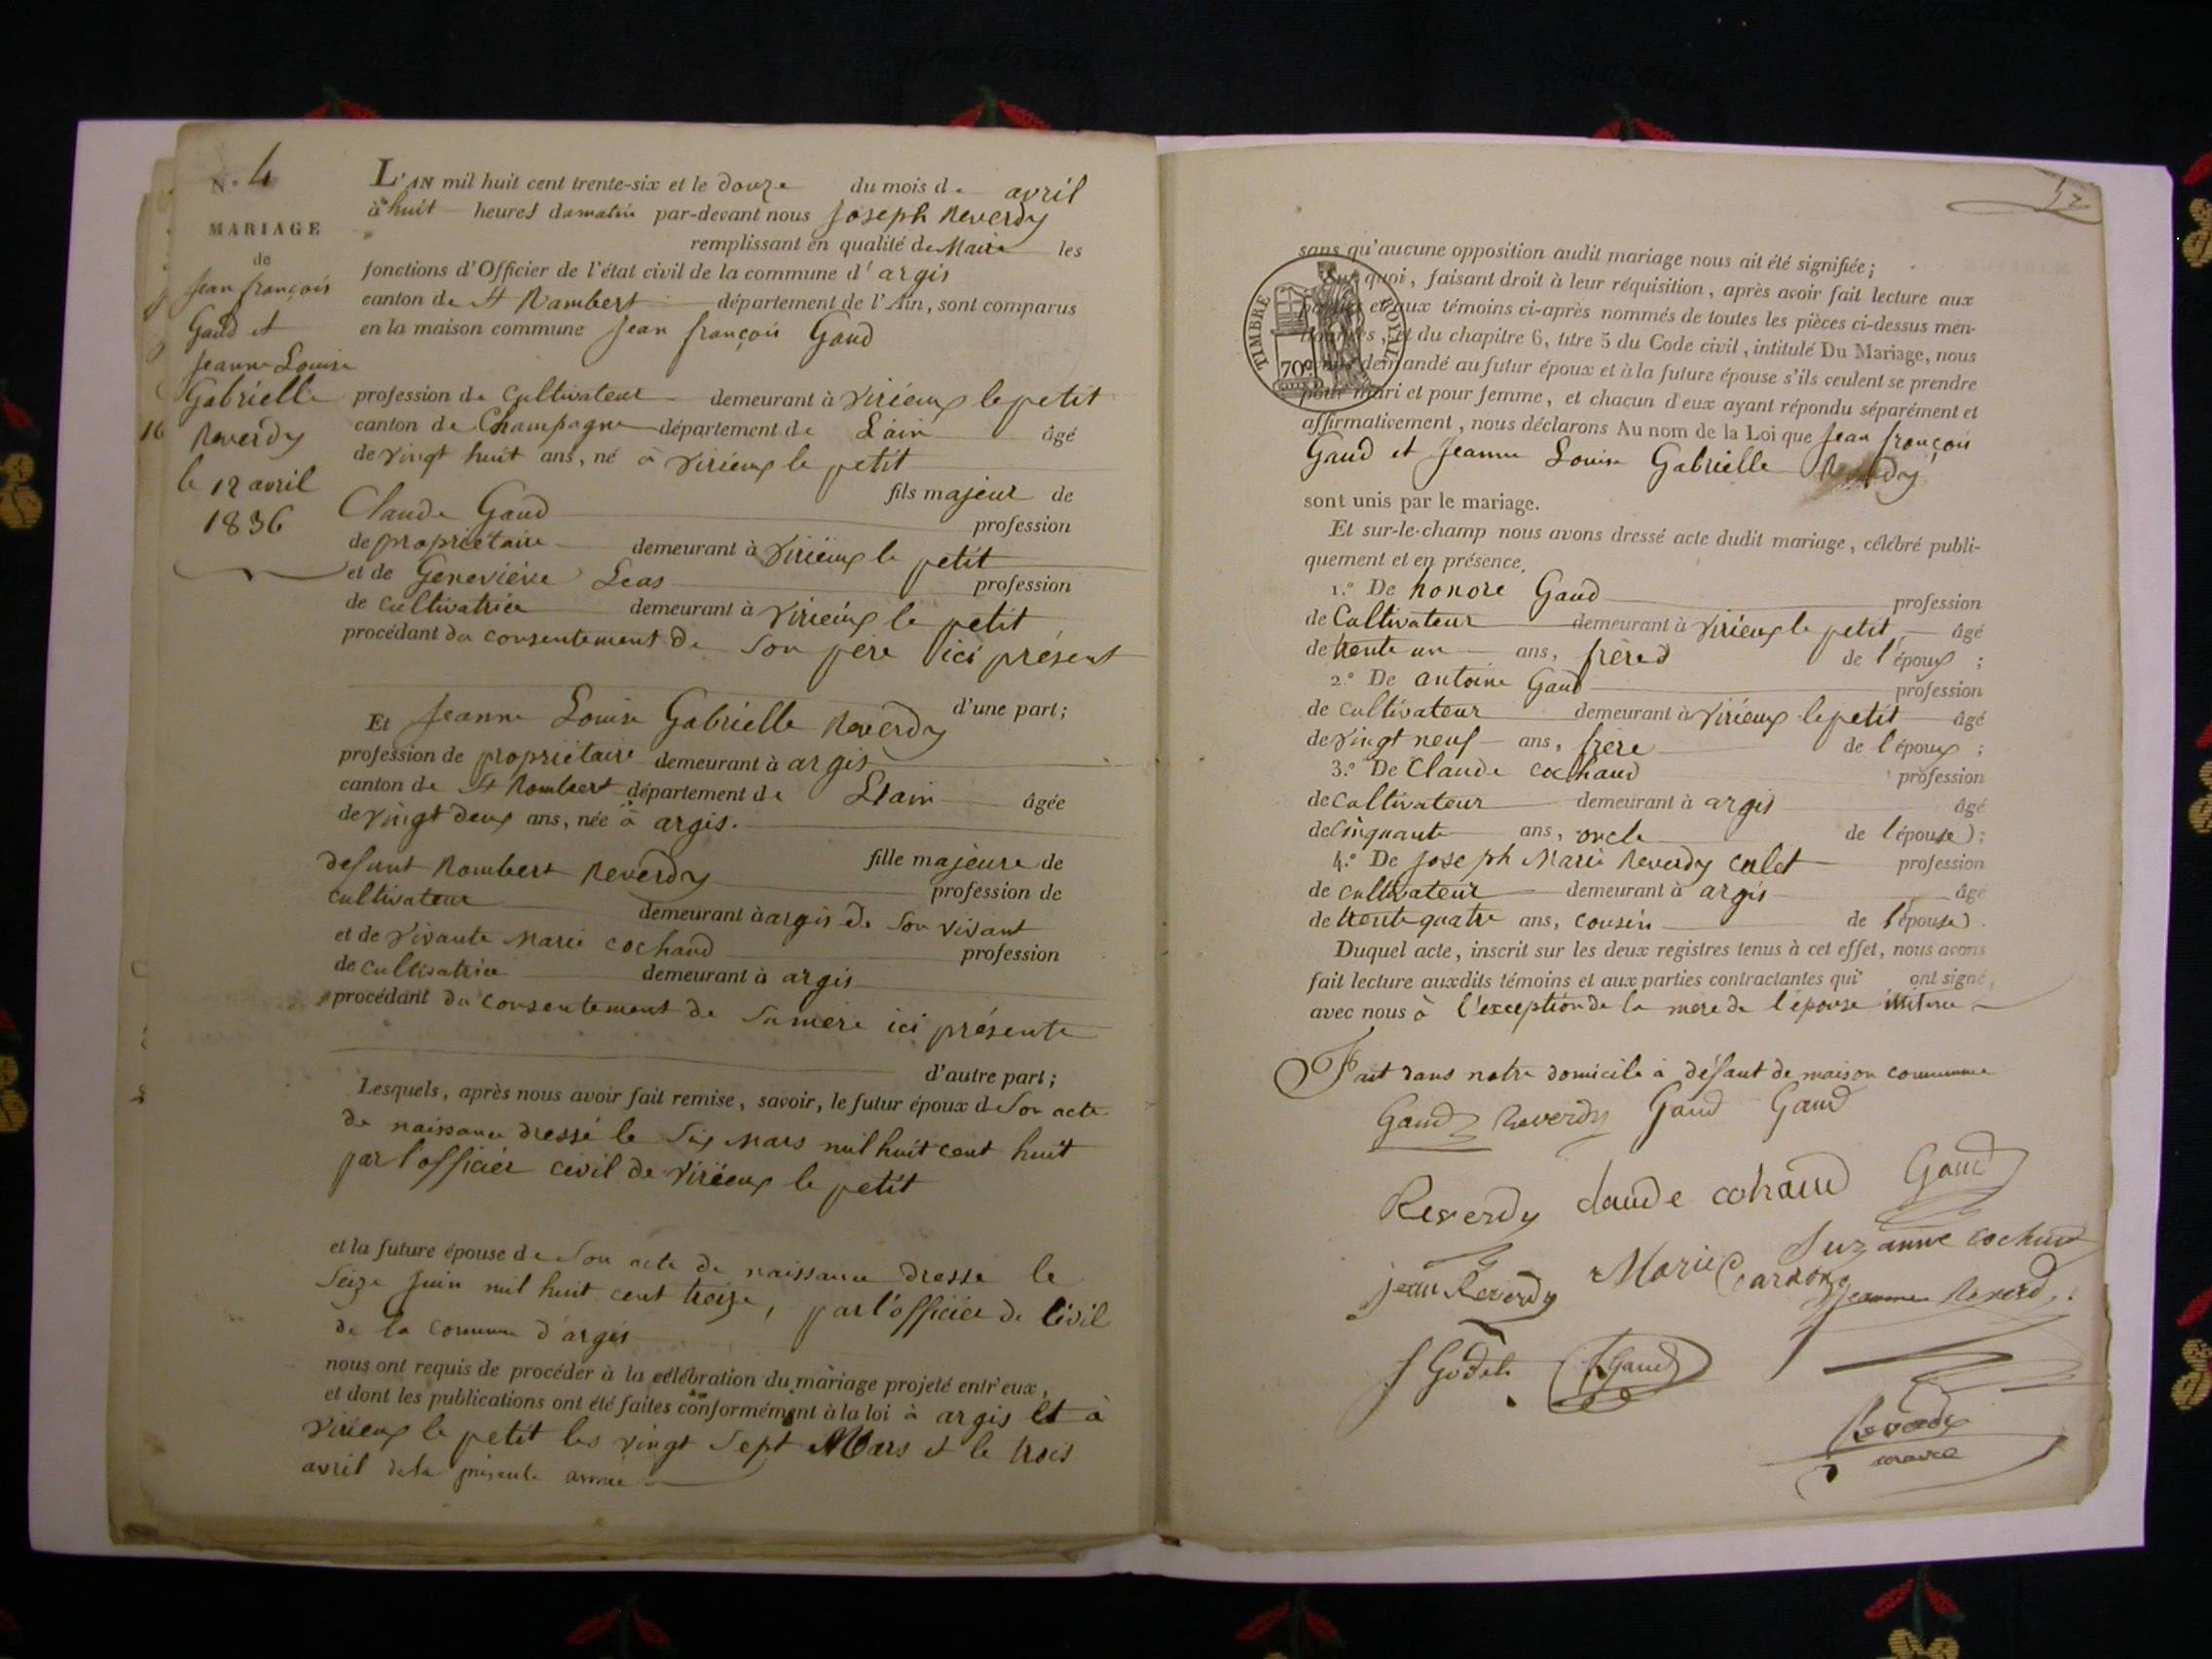 N.° 4
MARIAGE
de
Jean françois
Gaud et
Jeanne Louise
Gabrielle
Reverdy
le 12 avril
1836
16
L'AN mil huit cent trente-six et le douze du mois de avril
à huit heures du matin par-devant nous Joseph Reverdy
remplissant en qualité de Maire les
fonctions d'Officier de l'état civil de la commune d'argis
canton de St Rambert département de l'Ain, sont comparus
en la maison commune Jean françois Gaud
profession de Cultivateur demeurant à Virieux le petit
canton de Champagne département de L'ain âgé
de vingt huit ans, né à Virieux le petit
fils majeur de
Claude Gaud profession
de propriétaire demeurant à Virieux le petit
et de Geneviève Leas profession
de cultivatrice demeurant à Virieux le petit
procédant du consentement de son père ici présent
d'une part;
Et Jeanne Louise Gabrielle Reverdy
profession de propriétaire demeurant à argis
canton de St Rambert département de L'ain âgée
de vingt deux ans, née à argis.
fille majeure de
defunt Rambert Reverdy profession de
cultivateur demeurant à argis de son vivant
et de vivante Marie cochaud profession
de cultivatrice demeurant à argis
procédant du consentement de sa mère ici présente
d'autre part;
Lesquels, après nous avoir fait remise, savoir, le futur époux de son acte
de naissance dressé le six mars mil huit cent huit
par l'officier civil de Virieux le petit
et la future épouse de son acte de naissance dressé le
seize juin mil huit cent treize, par l'officier de Civil
de la commune d'argis
nous ont requis de procéder à la célébration du mariage projeté entr'eux,
et dont les publications ont été faites conformément à la loi à argis et à
Virieux le petit les vingt sept Mars et le trois
avril de la présente année
sans qu'aucune opposition audit mariage nous ait été signifiée;
Sur quoi, faisant droit à leur réquisition, après avoir fait lecture aux
parties et aux témoins ci-après nommés de toutes les pièces ci-dessus men-
tionnées, et du chapitre 6, titre 5 du Code civil, intitulé Du Mariage, nous
avons demandé au futur époux et à la future épouse s'ils veulent se prendre
pour mari et pour femme, et chacun d'eux ayant répondu séparément et
affirmativement, nous déclarons Au nom de la Loi que Jean françois
Gaud et Jeanne Louise Gabrielle Reverdy
sont unis par le mariage.
TIMBRE ROYAL
70c
Et sur-le-champ nous avons dressé acte dudit mariage, célébré publi-
quement et en présence,
1.° De honoré Gaud profession
de Cultivateur demeurant à Virieux le petit, âgé
de trente un ans, frère de l'époux;
2.° De antoine Gaud profession
de cultivateur demeurant à Virieux le petit âgé
de vingt neuf ans, frère de l'époux;
3.° De Claude cochaud profession
de cultivateur demeurant à argis âgé
de Cinquante ans, oncle de l'épouse;
4.° De Joseph Marie Reverdy calet profession
de cultivateur demeurant à argis âgé
de trente quatre ans, cousin de l'épouse.
Duquel acte, inscrit sur les deux registres tenus à cet effet, nous avons
fait lecture auxdits témoins et aux parties contractantes qui ont signé,
avec nous à l'exception de la mère de l'épouse
Fait dans notre domicile à défaut de maison commune
Gaud Reverdy Gaud Gaud
Reverdy claude cohaud Gaud
Suzanne cochaud
jean Reverdy Marie
Jeanne Reverdy
J Godet Gaud
Reverdy
maire